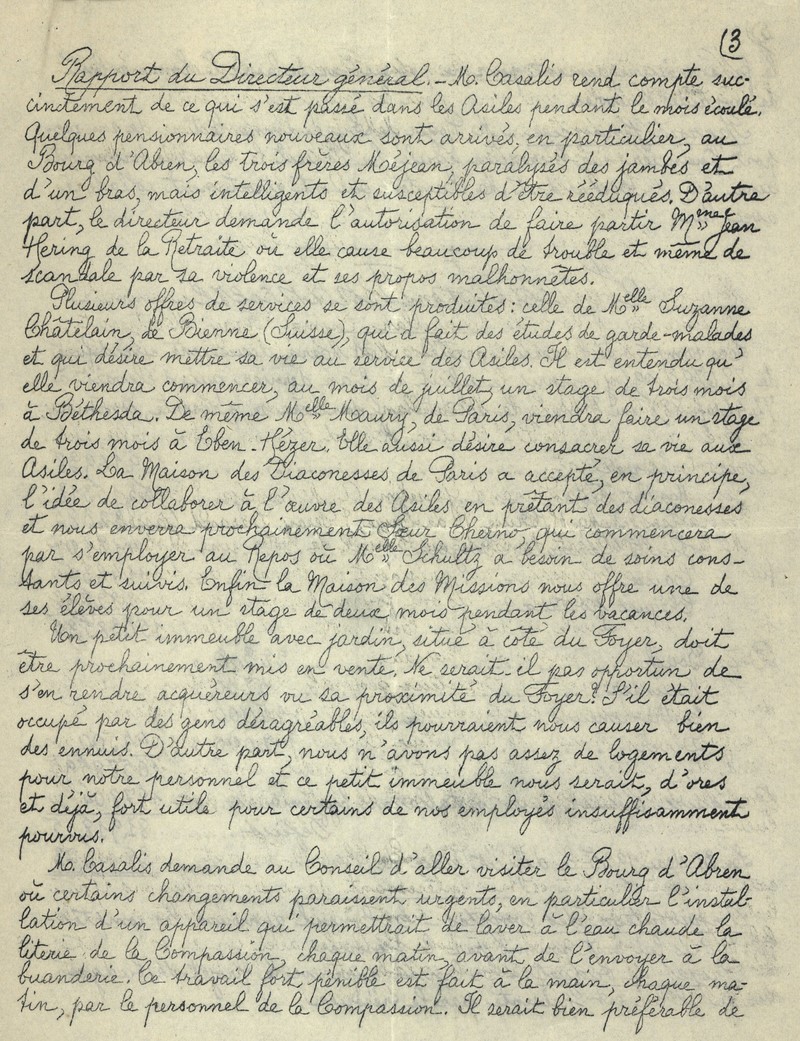 (3
Rapport du Directeur général. - M. Casalis rend compte suc-
cinctement de ce qui s'est passé dans les Asiles pendant le mois écoulé.
Quelques pensionnaires nouveaux sont arrivés, en particulier, au
Bourg d'Abren, les trois frères Méjean, paralysés des jambes et
d'un bras, mais intelligents et susceptibles d'être rééduqués. D'autre
part, le directeur demande l'autorisation de faire partir Mme Jean
Hering de la Retraite où elle cause beaucoup de trouble et même de
scandale par sa violence et ses propos malhonnêtes.
Plusieurs offres de services se sont produites: celle de Melle Suzanne
Châtelain, de Bienne (Suisse), qui a fait des études de garde-malades
et qui désire mettre sa vie au service des Asiles. Il est entendu qu'
elle viendra commencer, au mois de juillet, un stage de trois mois
à Béthesda. De même Melle Maury, de Paris, viendra faire un stage
de trois mois à Eben-Hézer. Elle aussi désire consacrer sa vie aux
Asiles. La Maison des Diaconesses de Paris a accepté, en principe,
l'idée de collaborer à l'œuvre des Asiles en prêtant des diaconesses
et nous enverra prochainement Sœur Cherno, qui commencera
par s'employer au Repos où Melle Schultz a besoin de soins cons-
tants et suivis. Enfin la Maison des Missions nous offre une de
ses élèves pour un stage de deux mois pendant les vacances.
Un petit immeuble avec jardin, situé à côté du Foyer, doit
être prochainement mis en vente. Ne serait-il pas opportun de
s'en rendre acquéreurs vu sa proximité du Foyer? S'il était
occupé par des gens désagréables, ils pourraient nous causer bien
des ennuis. D'autre part, nous n'avons pas assez de logements
pour notre personnel et ce petit immeuble nous serait, d'ores
et déjà, fort utile pour certains de nos employés insuffisamment
pourvus.
M. Casalis demande au Conseil d'aller visiter le Bourg d'Abren
où certains changements paraissent urgents, en particulier l'instal-
lation d'un appareil qui permettrait de laver à l'eau chaude la
literie de la Compassion, chaque matin, avant de l'envoyer à la
buanderie. Ce travail fort pénible est fait à la main, chaque ma-
tin, par le personnel de la Compassion. Il serait bien préférable de